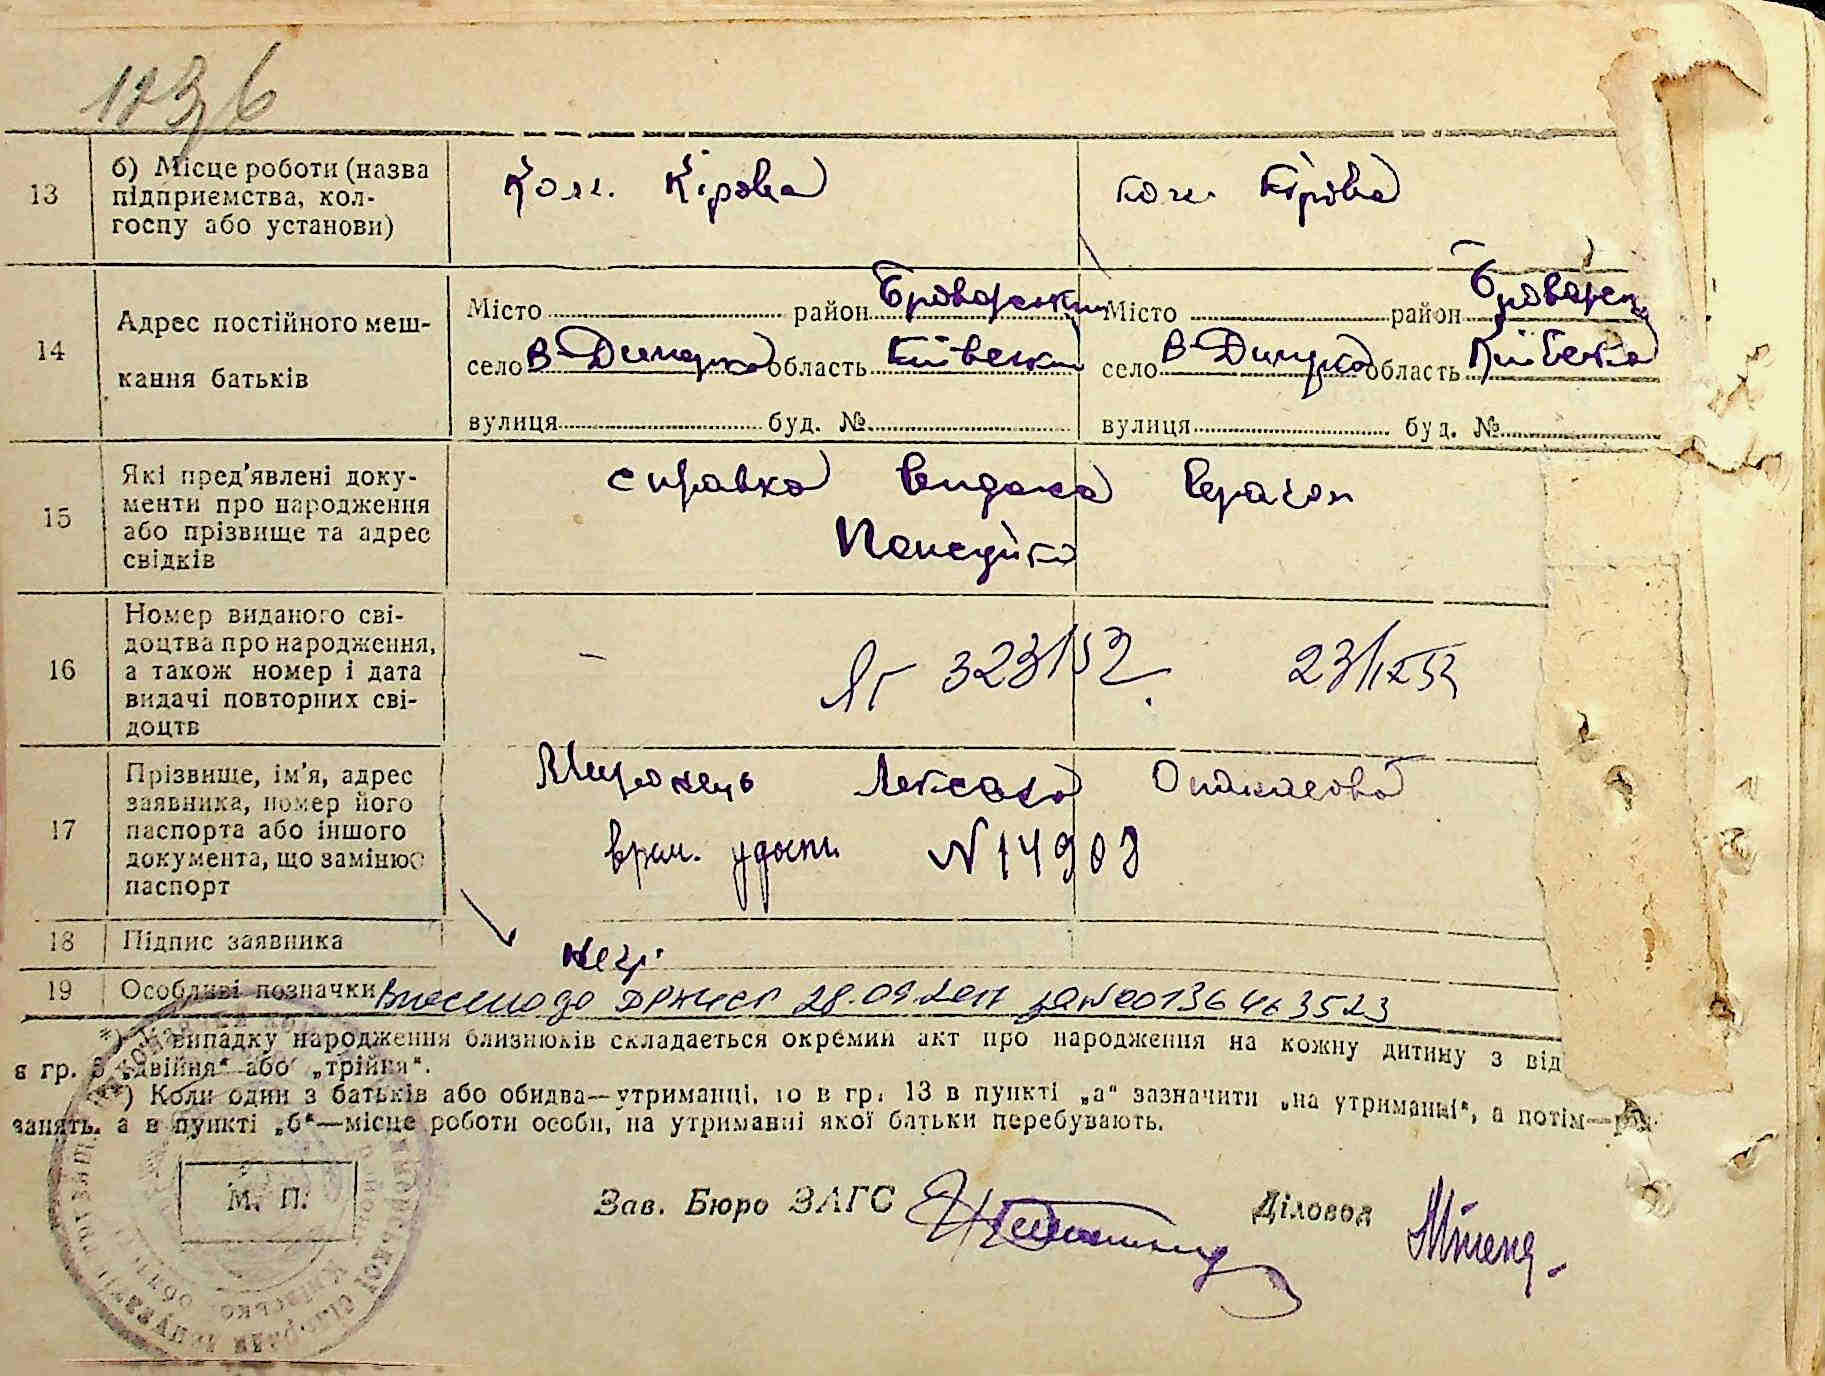 13 б) Місце роботи (назва підприємства, колгоспу або установи) Колг. Кірова колг. Кірова
14 Адрес постійного мешкання батьків
Місто район Броварськи Місто район Броварськ
село В-Димерка область Київськ село В-Димерка область Київська
вулиця буд. № вулиця буд. №
15 Які пред'явлені документи про народження або прізвище та адрес свідків справка видана врачом
16 Номер виданого свідоцтва про народження, а також номер і дата видачі повторних свідоцтв – ЯГ 323152. 23/IX 53
17 Прізвище, ім'я, адрес заявника, номер його паспорта або іншого документа, що замінює паспорт Миронець Опанасова
врем. удост. N 14903
18 Підпис заявника
19 Особливі позначки Внесено до ДРАЦСГ 28.09.2011 за N 00136463523
*) У випадку народження близнюків складається окремий акт про народження на кожну дитину з від
в гр. 3 „двійня" або „трійня".
) Коли один з батьків або обидва—утриманці, то в гр. 13 в пункті „а" зазначити „на утриманні", а потім—
занять, а в пункті „б"—місце роботи особи, на утриманні якої батьки перебувають.
М. П.
Зав. Бюро ЗАГС Діловод